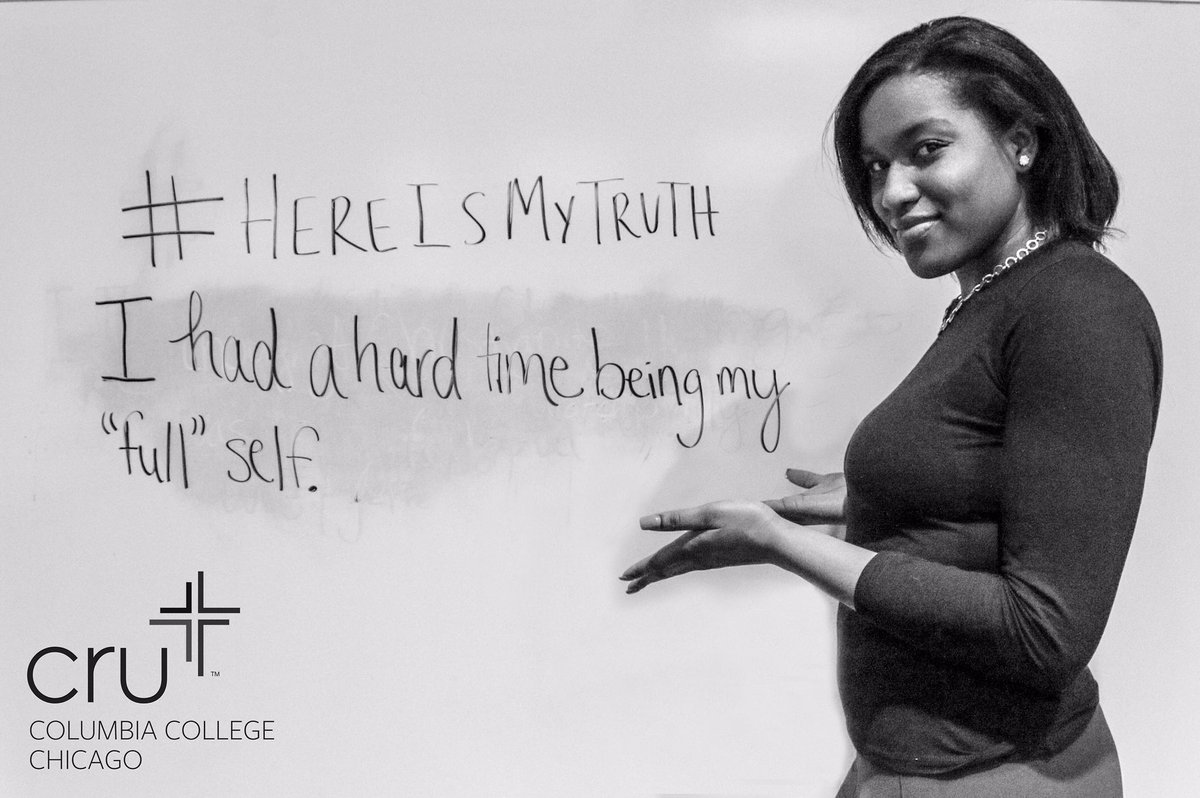 #HEREISMYTRUTH
I had a hard time being my
"full" self.
cru™
COLUMBIA COLLEGE
CHICAGO